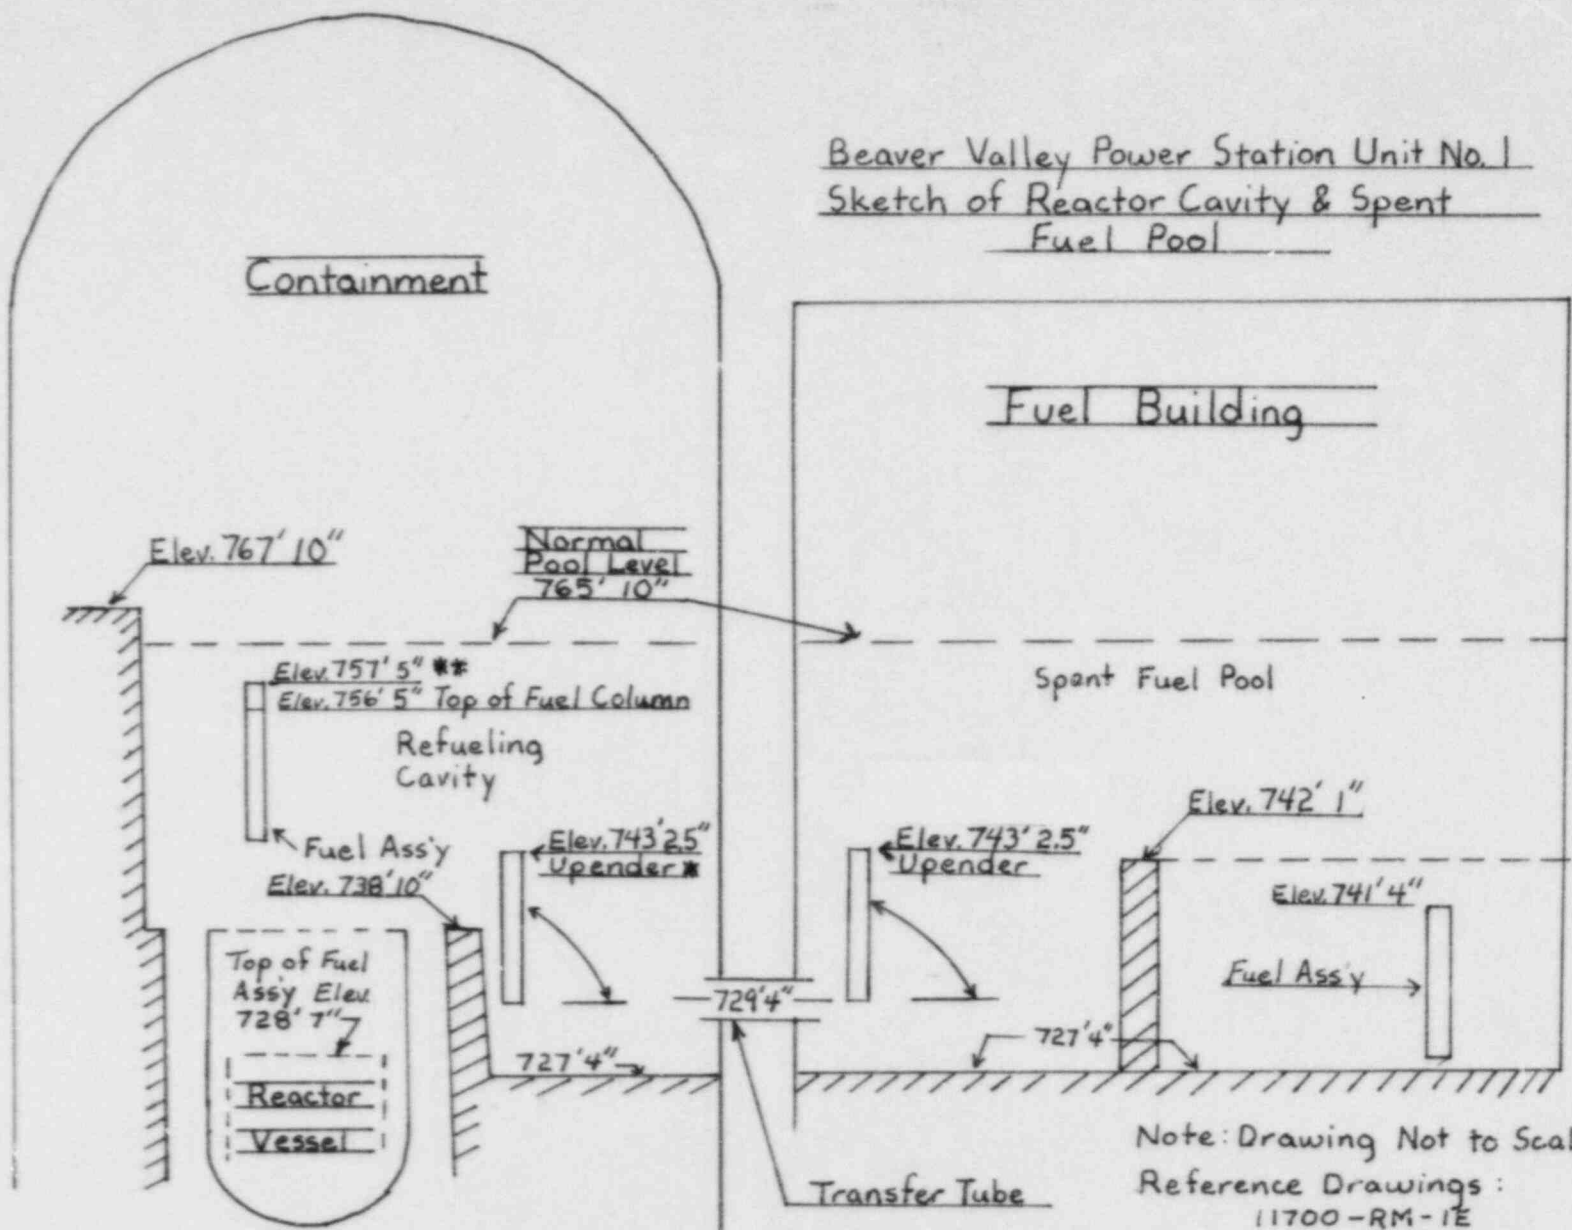 Beaver Valley Power Station Unit No. 1
Sketch of Reactor Cavity & Spent
Fuel Pool
Containment
Fuel Building
Elev. 767' 10"
Normal
Pool Level
765' 10"
Elev. 757' 5" **
Elev. 756' 5" Top of Fuel Column
Spent Fuel Pool
Refueling
Cavity
Elev. 742' 1"
Fuel Ass'y
Elev. 743' 2.5"
Upender *
Elev. 743' 2.5"
Upender
Elev. 738' 10"
Elev. 741' 4"
Top of Fuel
Ass'y Elev.
728' 7"
Fuel Ass'y
729' 4"
727' 4"
727' 4"
Reactor
Vessel
Transfer Tube
Note: Drawing Not to Scal
Reference Drawings:
11700-RM-1E